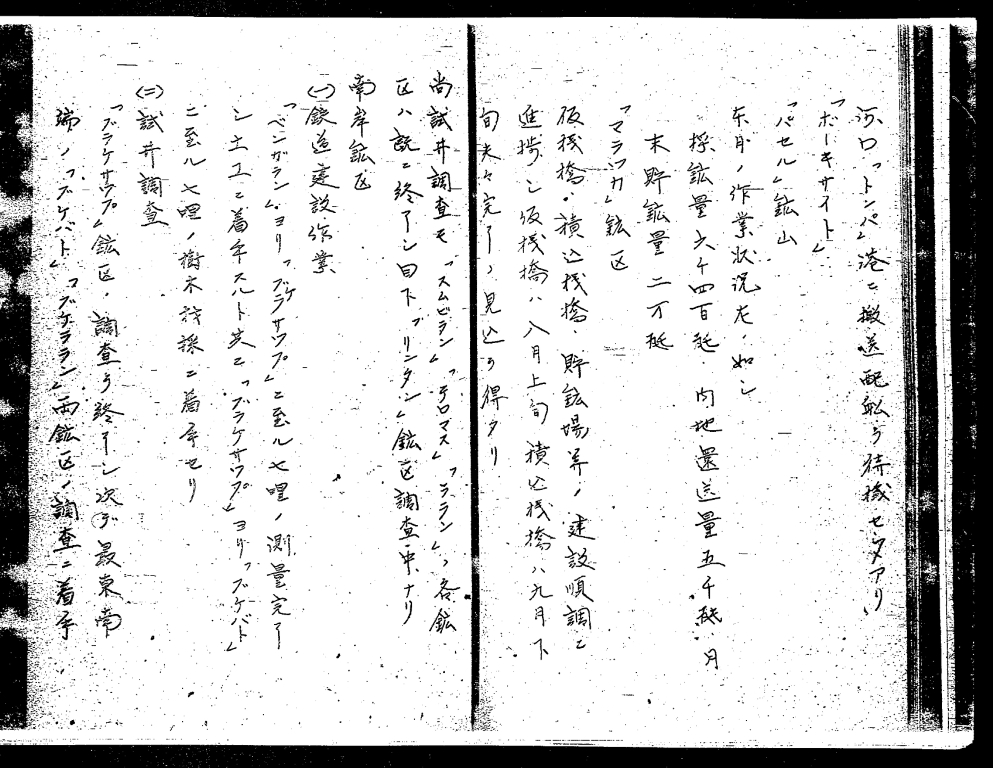 河口「トンパ」港ニ搬送配船ヲ待機セシメアリ
「ボーキサイト」
「パセル」鉱山
本月ノ作業状況左ノ如シ
採鉱量六千四百瓲、内地還送量五千瓲、月
末貯鉱量二万瓲
「マラッカ」鉱区
仮桟橋、積込桟橋、貯鉱場等ノ建設順調ニ
進捗シ仮桟橋ハ八月上旬積込桟橋ハ九月下
旬夫々完了ノ見込ヲ得タリ
尚試井調査モ「スムビラン」「テロマス」「ララン」ノ各鉱
区ハ既ニ終了シ目下「リンタン」鉱区調査中ナリ
南岸鉱区
(一)鉄道建設作業
「ペンガラン」ヨリ「ブケラサウプ」ニ至ル七哩ノ測量完了
シ土工ニ着手スルト共ニ「ブラケサウプ」ヨリ「ブケバト」
ニ至ル七哩ノ樹木伐採ニ着手セリ
(二)試井調査
「ブラケサウプ」鉱区ノ調査ヲ終了シ次デ最東南
端ノ「ブケバト」「ブケララン」両鉱区ノ調査ニ着手